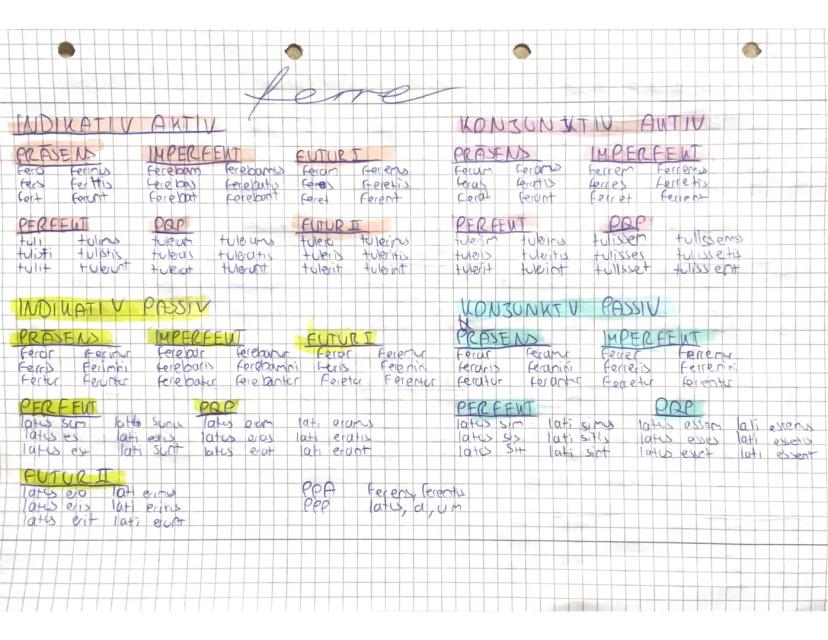 ferre
INDIKATIV AKTIV KONJUNKTIV AKTIV
PRÄSENS IMPERFEKT FUTUR I PRÄSENS IMPERFEKT
fero ferimus ferebam ferebamus feram feremus feram feramus ferrem ferremus
fers fertis ferebas ferebatis feres feretis feras feratis ferres ferretis
fert ferunt ferebat ferebant feret ferent ferat ferant ferret ferrent
PERFEKT PQP FUTUR II PERFEKT PQP
tuli tulimus tuleram tuleramus tulero tulerimus tulerim tulerimus tulissem tulissemus
tulisti tulistis tuleras tuleratis tuleris tuleritis tuleris tuleritis tulisses tulissetis
tulit tulerunt tulerat tulerant tulerit tulerint tulerit tulerint tulisset tulissent
INDIKATIV PASSIV KONJUNKTIV PASSIV
PRÄSENS IMPERFEKT FUTUR I PRÄSENS IMPERFEKT
feror ferimur ferebar ferebamur ferar feremur ferar feramur ferrer ferremur
ferris ferimini ferebaris ferebamini feris feremini feraris feramini ferreris ferremini
fertur feruntur ferebatur ferebantur feretur ferentur feratur ferantur ferretur ferrentur
PERFEKT PQP PERFEKT PQP
latus sum lati sumus latus eram lati eramus latus sim lati simus latus essem lati essemus
latus es lati estis latus eras lati eratis latus sis lati sitis latus esses lati essetis
latus est lati sunt latus erat lati erant latus sit lati sint latus esset lati essent
FUTUR II
latus ero lati erimus PPA ferens, ferentis
latus eris lati eritis PPP latus, a, um
latus erit lati erunt